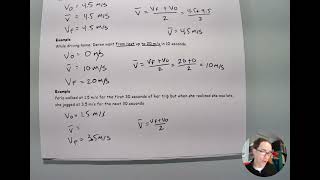 V₀ = 4.5 m/s
V̄ = 4.5 m/s
V̄ = Vf + V₀ / 2 = 4.5 + 4.5 / 2
Vf = 4.5 m/s
V̄ = 4.5 m/s
Example
While driving home, Deron went from rest up to 20 m/s in 10 seconds.
V₀ = 0 m/s
V̄ = 10 m/s
V̄ = Vf + V₀ / 2 = 20 + 0 / 2 = 10 m/s
Vf = 20 m/s
Example
walked at 1.5 m/s for the first 30 seconds of her trip but when she realized she was late,
she jogged at 3.5 m/s for the next 30 seconds
V₀ = 1.5 m/s
V̄ =
V̄ = Vf + V₀ / 2
Vf = 3.5 m/s